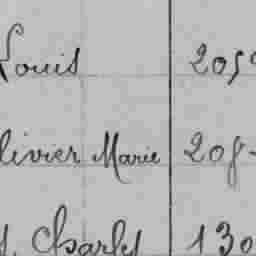 Louis 205
livier Marie 208
Charles 130